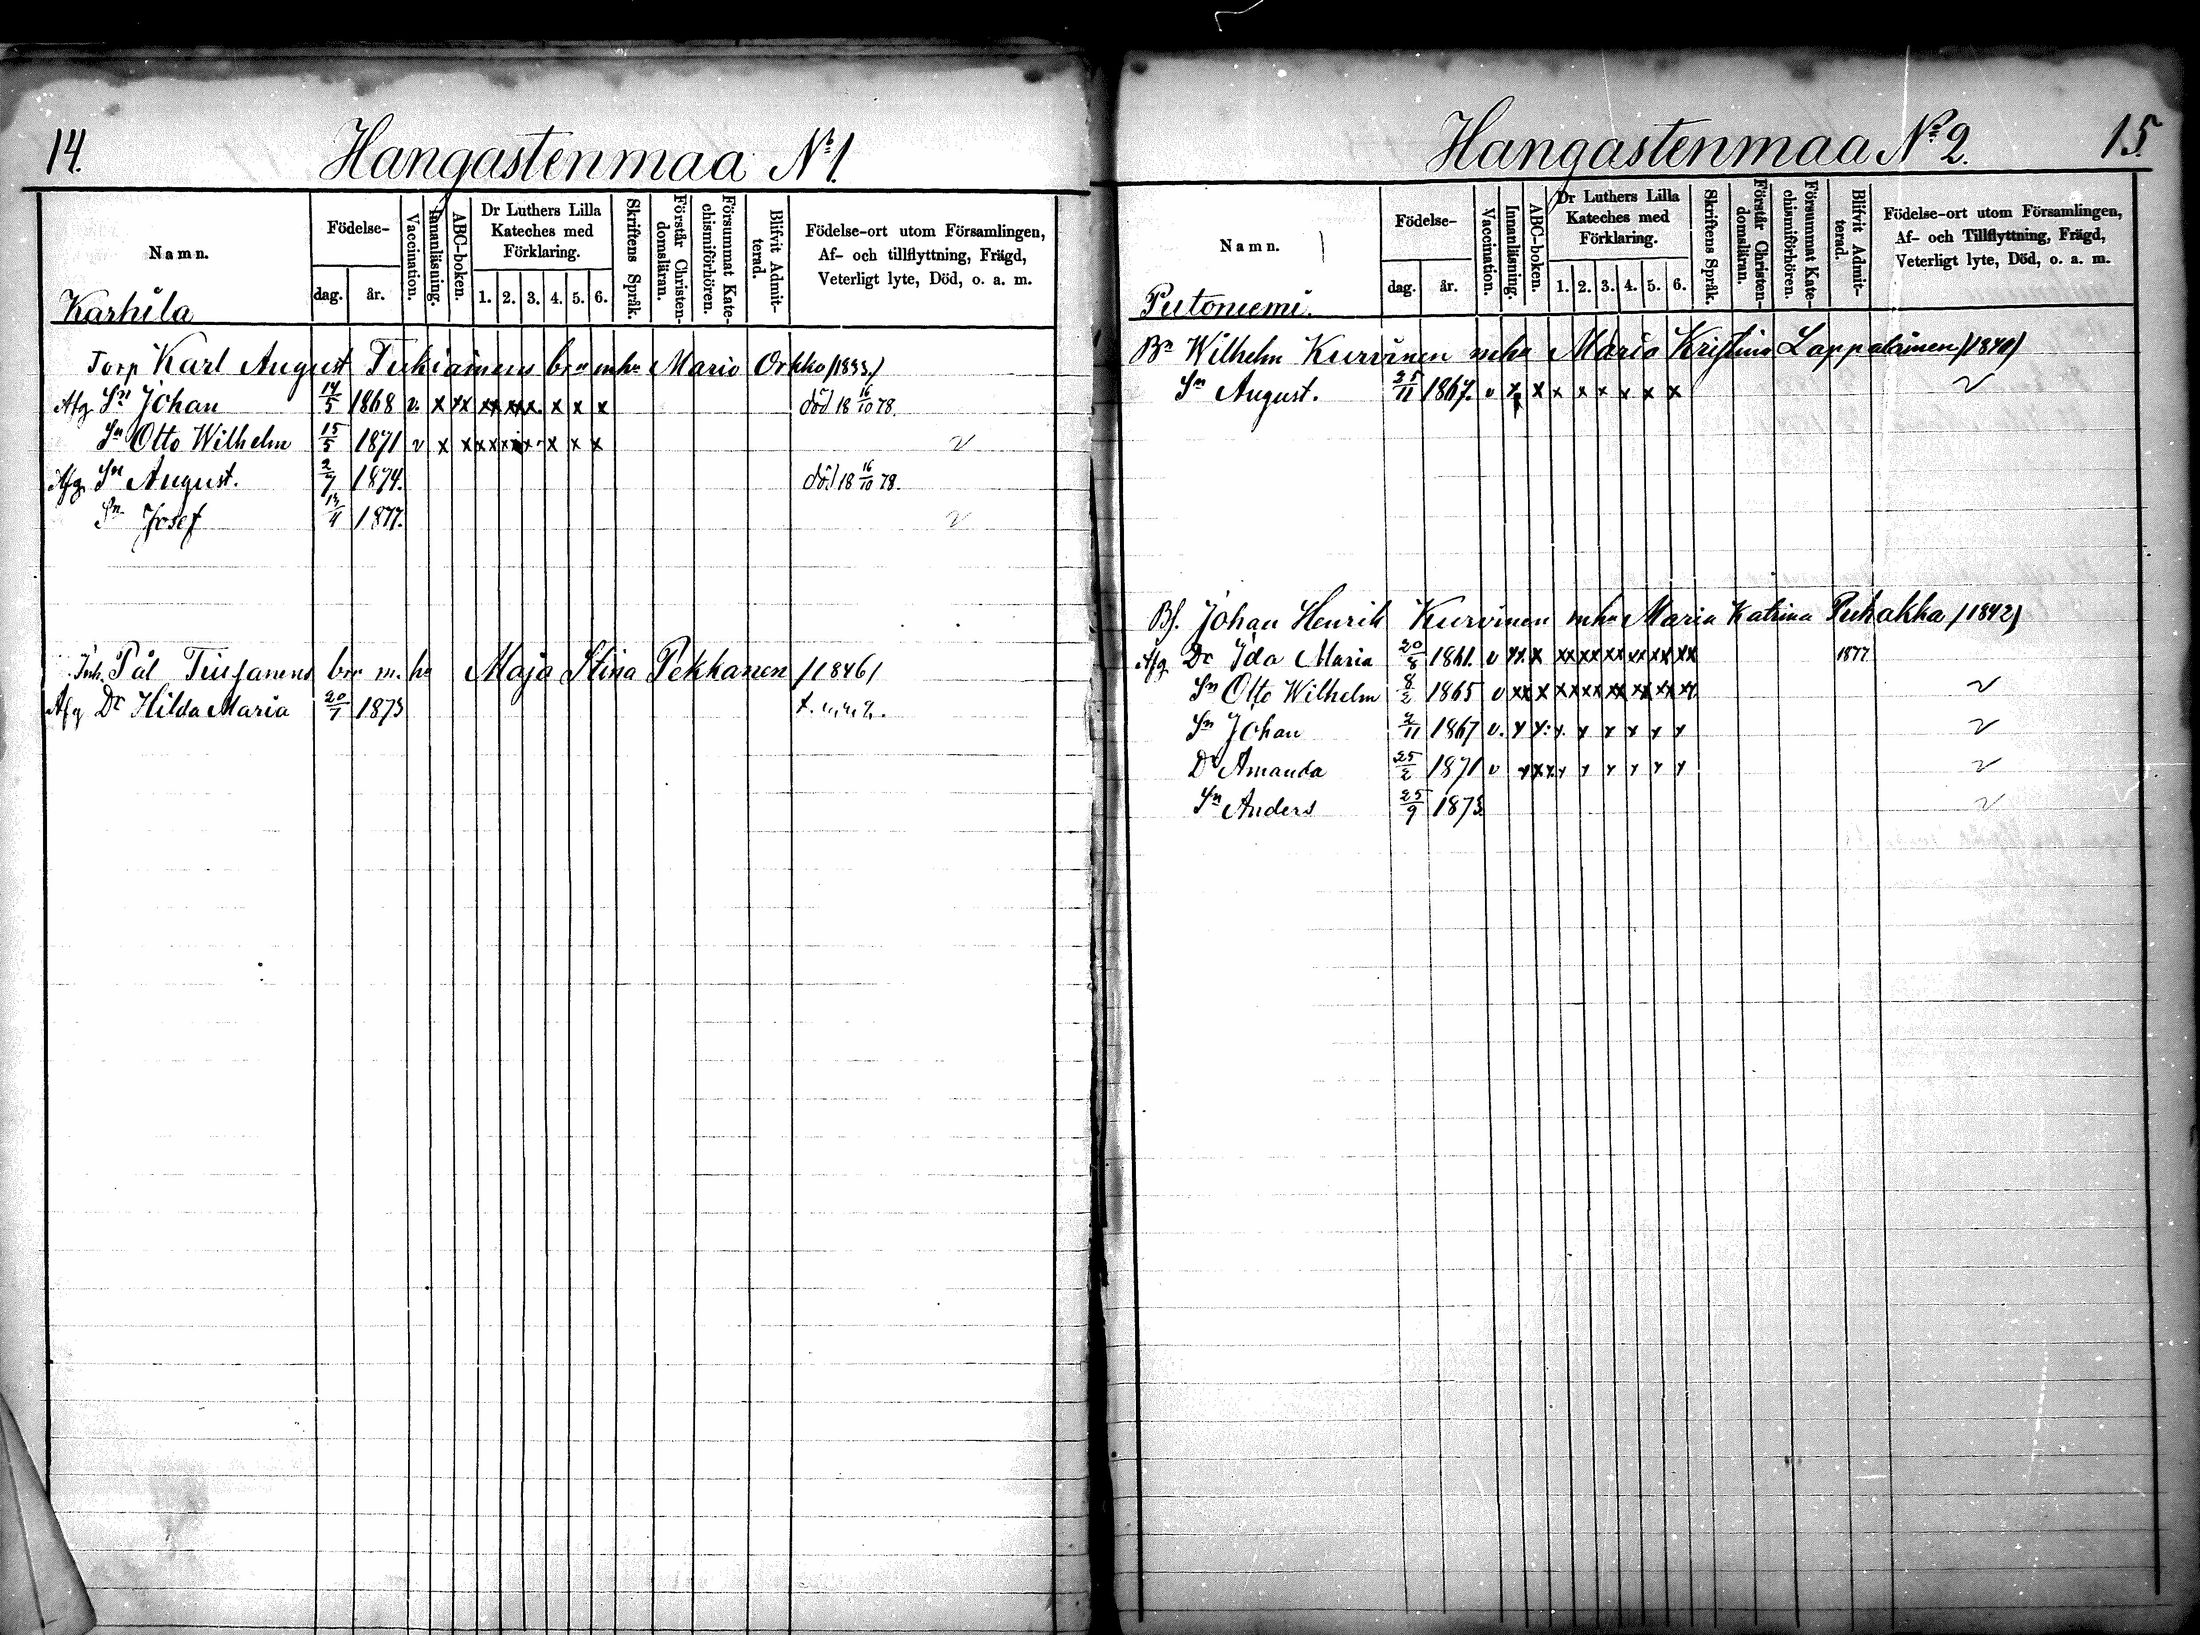 14.
Hangastenmaa No 1.
Namn.
Födelse-
dag.
år.
Vaccination.
Innanläsning.
ABC-boken.
Dr Luthers Lilla
Kateches med
Förklaring.
1. 2. 3. 4. 5. 6.
Skriftens Språk.
Förstår Christen-
domsläran.
Försummat Kate-
chismiförhören.
Blifvit Admit-
terad.
Födelse-ort utom Församlingen,
Af- och tillflyttning, Frägd,
Veterligt lyte, Död, o. a. m.
Karhila
Torp Karl August mhu Maria Orkko /1833/
Afg Sn Johan 14/5 1868 v. x xx xx xxx x x x död 18 16/10 78.
Sn Otto Wilhelm 15/5 1871 v x x xx xx x x x x v
Afg Sn August. 2/7 1874. död 18 16/10 78.
Sn Josef 13/4 1877. v
Inh. Pål m. hu Maja Stina Pekkanen /1846/
Afg Dr Hilda Maria 20/7 1873
15.
Hangastenmaa No 2.
Namn.
Födelse-
dag.
år.
Vaccination.
Innanläsning.
ABC-boken.
Dr Luthers Lilla
Kateches med
Förklaring.
1. 2. 3. 4. 5. 6.
Skriftens Språk.
Förstår Christen-
domsläran.
Försummat Kate-
chismiförhören.
Blifvit Admit-
terad.
Födelse-ort utom Församlingen,
Af- och Tillflyttning, Frägd,
Veterligt lyte, Död, o. a. m.
Putoniemi.
Bn Wilhelm Kurvinen mhu Maria Kristina Lappalainen /1840/
Sn August. 25/11 1867. v x x x x x x x x v
Bf. Johan Henrik Kurvinen mhu Maria Katrina Puhakka /1842/
Afg Dr Ida Maria 20/8 1861. v xx x xx xx xx xx xx xx 1877
Sn Otto Wilhelm 8/2 1865 v xx x xx xx xx xx xx xx v
Sn Johan 2/11 1867 v. x x x x x x x x v
Dr Amanda 25/2 1871 v x xx x x x x x x v
Sn Anders 25/9 1873 v